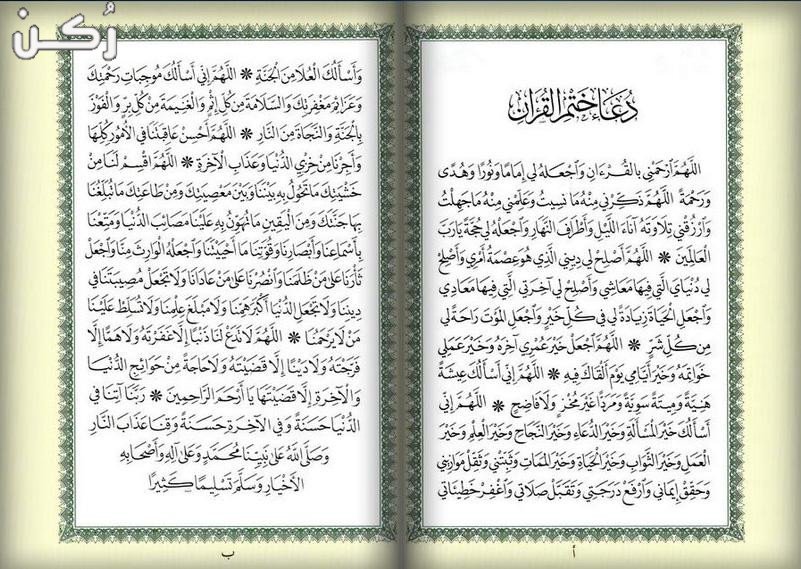 رُكن
دُعَاءُ خَتْمِ الْقُرْآنِ
اللَّهُمَّ ٱرْحَمْنِي بِالْقُرْءَانِ وَٱجْعَلْهُ لِي إِمَامًا وَنُورًا وَهُدًى
وَرَحْمَةً اللَّهُمَّ ذَكِّرْنِي مِنْهُ مَا نَسِيتُ وَعَلِّمْنِي مِنْهُ مَا جَهِلْتُ
وَٱرْزُقْنِي تِلَاوَتَهُ آنَاءَ اللَّيْلِ وَأَطْرَافَ النَّهَارِ وَٱجْعَلْهُ لِي حُجَّةً يَا رَبَّ
الْعَالَمِينَ ❋ اللَّهُمَّ أَصْلِحْ لِي دِينِي الَّذِي هُوَ عِصْمَةُ أَمْرِي وَأَصْلِحْ
لِي دُنْيَايَ الَّتِي فِيهَا مَعَاشِي وَأَصْلِحْ لِي آخِرَتِي الَّتِي فِيهَا مَعَادِي
وَٱجْعَلِ الْحَيَاةَ زِيَادَةً لِي فِي كُلِّ خَيْرٍ وَٱجْعَلِ الْمَوْتَ رَاحَةً لِي
مِنْ كُلِّ شَرٍّ ❋ اللَّهُمَّ ٱجْعَلْ خَيْرَ عُمْرِي آخِرَهُ وَخَيْرَ عَمَلِي
خَوَاتِمَهُ وَخَيْرَ أَيَّامِي يَوْمَ أَلْقَاكَ فِيهِ ❋ اللَّهُمَّ إِنِّي أَسْأَلُكَ عِيشَةً
هَنِيَّةً وَمِيتَةً سَوِيَّةً وَمَرَدًّا غَيْرَ مُخْزٍ وَلَا فَاضِحٍ ❋ اللَّهُمَّ إِنِّي
أَسْأَلُكَ خَيْرَ الْمَسْأَلَةِ وَخَيْرَ الدُّعَاءِ وَخَيْرَ النَّجَاحِ وَخَيْرَ الْعِلْمِ وَخَيْرَ
الْعَمَلِ وَخَيْرَ الثَّوَابِ وَخَيْرَ الْحَيَاةِ وَخَيْرَ الْمَمَاتِ وَثَبِّتْنِي وَثَقِّلْ مَوَازِينِي
وَحَقِّقْ إِيمَانِي وَٱرْفَعْ دَرَجَتِي وَتَقَبَّلْ صَلَاتِي وَٱغْفِرْ خَطِيئَاتِي
أ
وَأَسْأَلُكَ الْعُلَا مِنَ الْجَنَّةِ ❋ اللَّهُمَّ إِنِّي أَسْأَلُكَ مُوجِبَاتِ رَحْمَتِكَ
وَعَزَائِمَ مَغْفِرَتِكَ وَالسَّلَامَةَ مِنْ كُلِّ إِثْمٍ وَالْغَنِيمَةَ مِنْ كُلِّ بِرٍّ وَالْفَوْزَ
بِالْجَنَّةِ وَالنَّجَاةَ مِنَ النَّارِ ❋ اللَّهُمَّ أَحْسِنْ عَاقِبَتَنَا فِي الْأُمُورِ كُلِّهَا
وَأَجِرْنَا مِنْ خِزْيِ الدُّنْيَا وَعَذَابِ الْآخِرَةِ ❋ اللَّهُمَّ اقْسِمْ لَنَا مِنْ
خَشْيَتِكَ مَا تَحُولُ بِهِ بَيْنَنَا وَبَيْنَ مَعْصِيَتِكَ وَمِنْ طَاعَتِكَ مَا تُبَلِّغُنَا
بِهَا جَنَّتَكَ وَمِنَ الْيَقِينِ مَا تُهَوِّنُ بِهِ عَلَيْنَا مَصَائِبَ الدُّنْيَا وَمَتِّعْنَا
بِأَسْمَاعِنَا وَأَبْصَارِنَا وَقُوَّتِنَا مَا أَحْيَيْتَنَا وَٱجْعَلْهُ الْوَارِثَ مِنَّا وَٱجْعَلْ
ثَأْرَنَا عَلَى مَنْ ظَلَمَنَا وَٱنْصُرْنَا عَلَى مَنْ عَادَانَا وَلَا تَجْعَلْ مُصِيبَتَنَا فِي
دِينِنَا وَلَا تَجْعَلِ الدُّنْيَا أَكْبَرَ هَمِّنَا وَلَا مَبْلَغَ عِلْمِنَا وَلَا تُسَلِّطْ عَلَيْنَا
مَنْ لَا يَرْحَمُنَا ❋ اللَّهُمَّ لَا تَدَعْ لَنَا ذَنْبًا إِلَّا غَفَرْتَهُ وَلَا هَمًّا إِلَّا
فَرَّجْتَهُ وَلَا دَيْنًا إِلَّا قَضَيْتَهُ وَلَا حَاجَةً مِنْ حَوَائِجِ الدُّنْيَا
وَالْآخِرَةِ إِلَّا قَضَيْتَهَا يَا أَرْحَمَ الرَّاحِمِينَ ❋ رَبَّنَا آتِنَا فِي
الدُّنْيَا حَسَنَةً وَفِي الْآخِرَةِ حَسَنَةً وَقِنَا عَذَابَ النَّارِ
وَصَلَّى اللَّهُ عَلَى نَبِيِّنَا مُحَمَّدٍ وَعَلَى آلِهِ وَأَصْحَابِهِ
الْأَخْيَارِ وَسَلَّمَ تَسْلِيمًا كَثِيرًا
ب